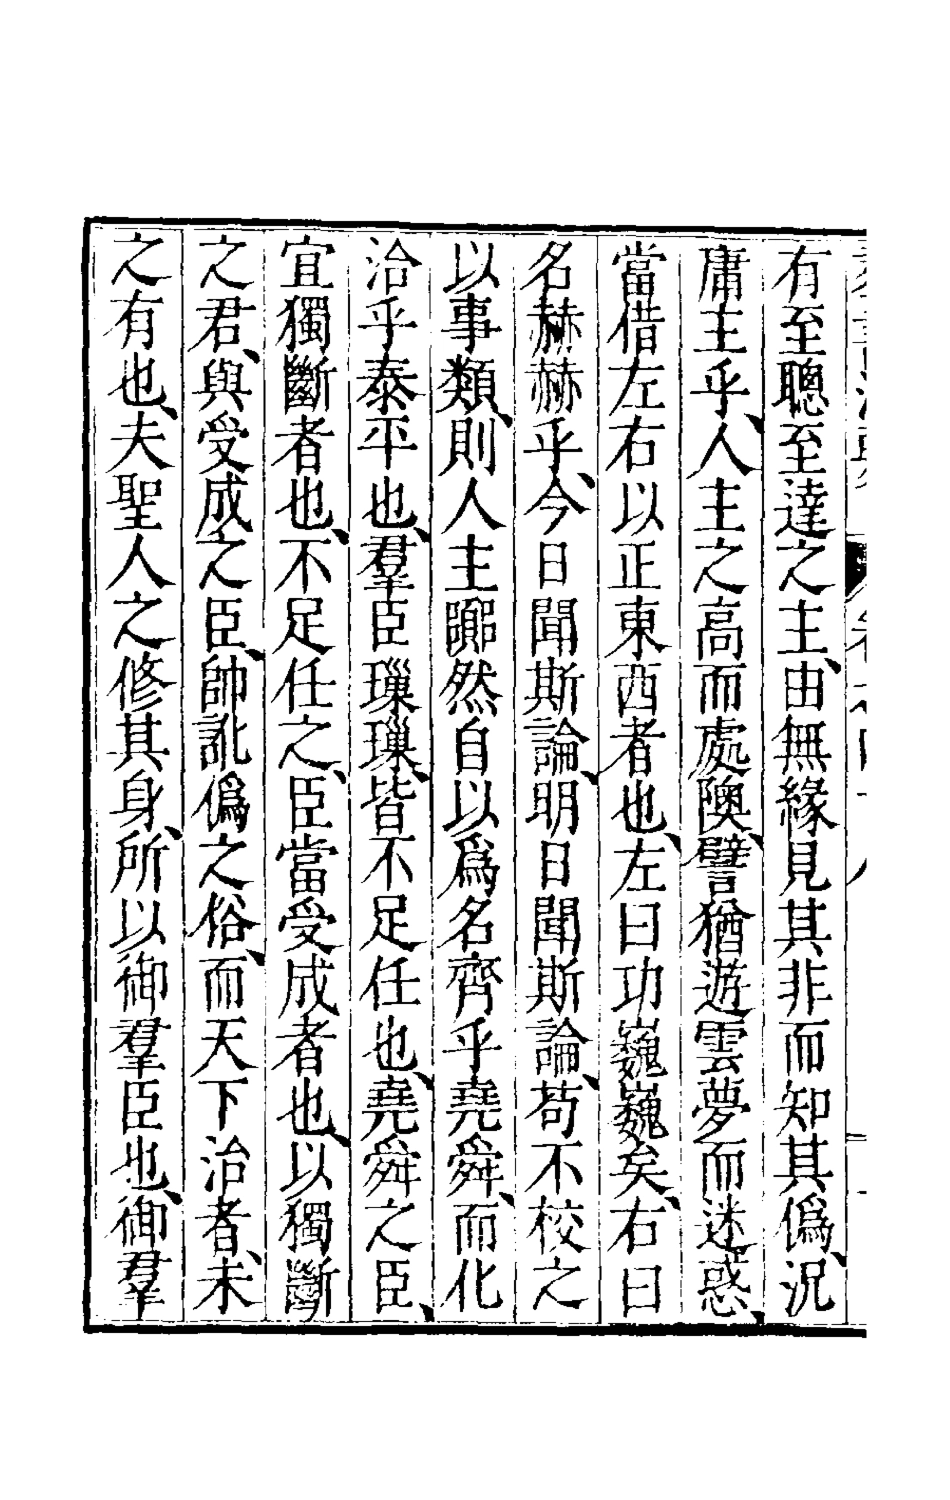 有至聰至達之主、由無緣見其非而知其僞、況
庸主乎、人主之高而處隩、譬猶遊雲夢而迷惑、
當借左右以正東西者也、左曰功巍巍矣、右曰
名赫赫乎、今日聞斯論、明日聞斯論、苟不校之
以事類、則人主嚻然自以爲名齊乎堯舜、而化
洽乎泰平也、羣臣璅璅、皆不足任也、堯舜之臣、
宜獨斷者也、不足任之、臣當受成者也、以獨斷
之君、與受成之臣、帥訛僞之俗、而天下治者、未
之有也、夫聖人之修其身、所以御羣臣也、御羣